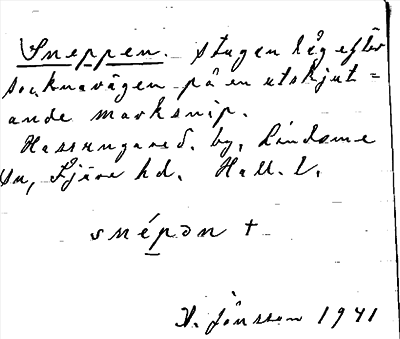 Sneppen. stugan låg efter
socknavägen på en utskjut=
ande marksnip.
Hassungared. by, Lindome
sn, Fjäre hd. Hall. l.
snépən +
H. Jönsson 1941